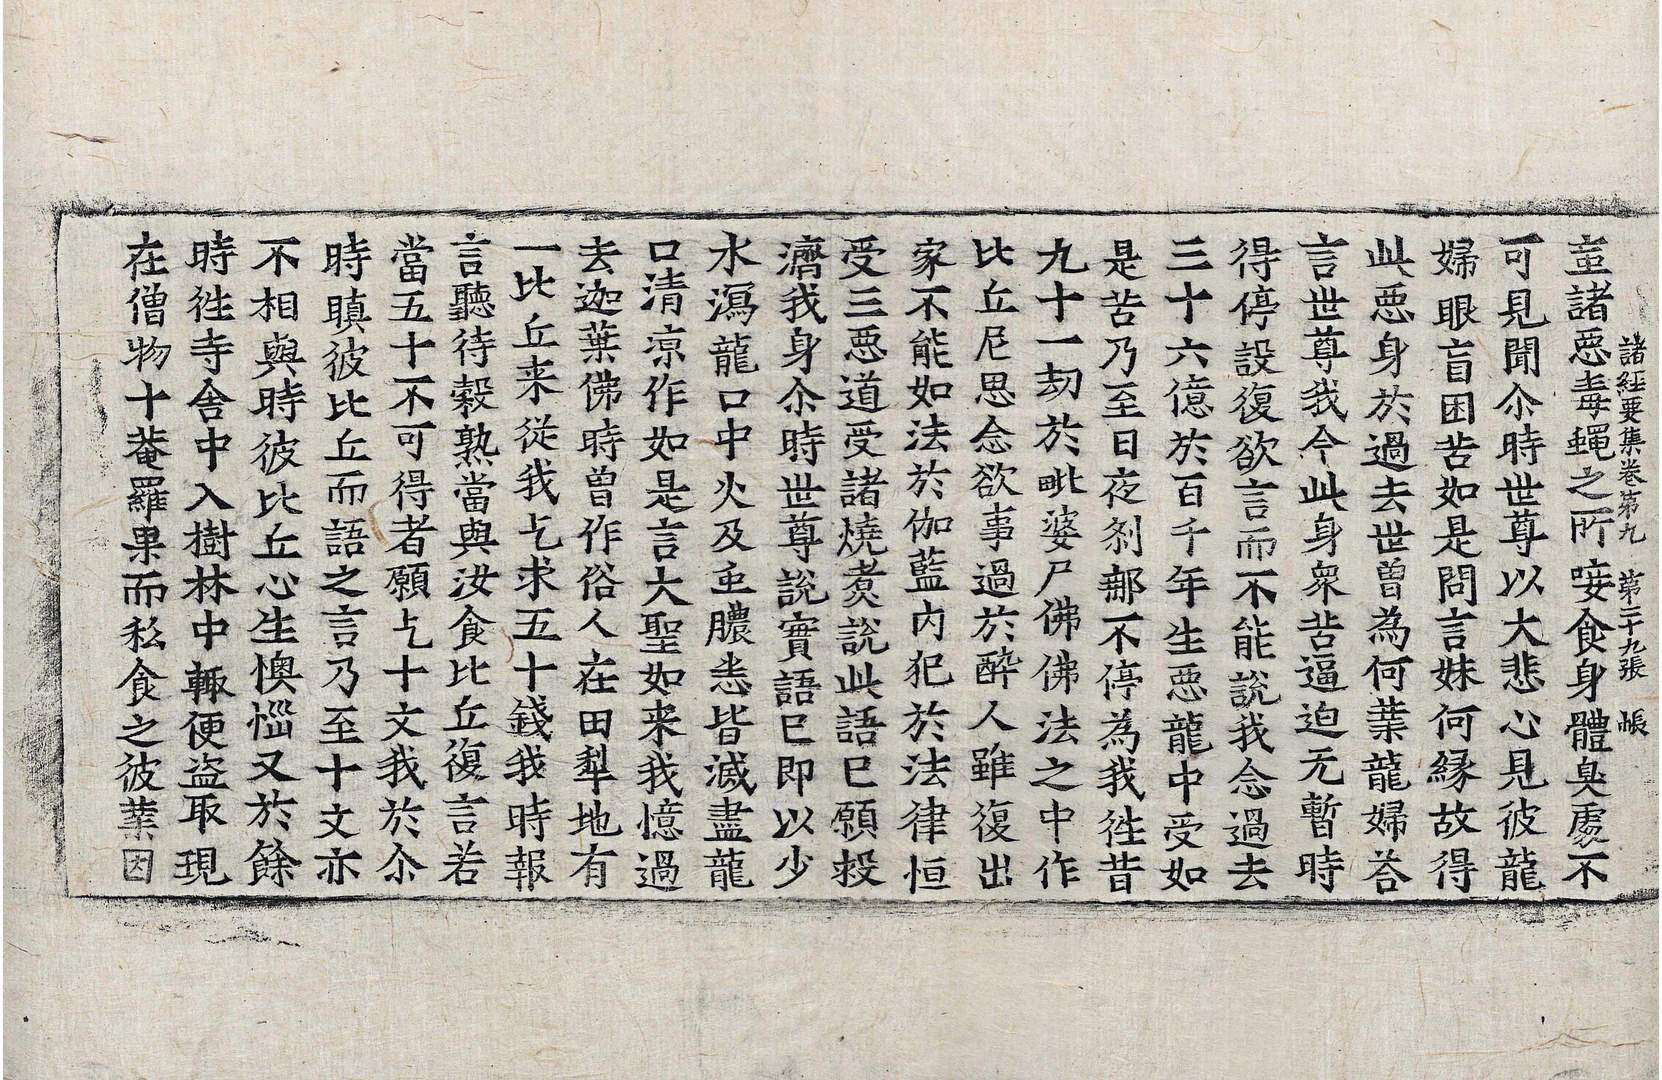 諸経要集卷第九 第二十九張 帳
䖝諸惡毒蠅之所唼食身體臭處不
可見聞尒時世尊以大悲心見彼龍
婦眼盲困苦如是問言妹何縁故得
此惡身於過去世曾為何業龍婦荅
言世尊我今此身衆苦逼迫无暫時
得停設復欲言而不能說我念過去
三十六億於百千年生惡龍中受如
是苦乃至日夜剎那不停為我徃昔
九十一劫於毗婆尸佛佛法之中作
比丘尼思念欲事過於醉人雖復出
家不能如法於伽藍内犯於法律恒
受三惡道受諸燒煮說此語巳願救
濟我身尒時世尊說實語巳即以少
水瀉龍口中火及䖝膿悉皆滅盡龍
口清凉作如是言大聖如来我憶過
去迦葉佛時曾作俗人在田犁地有
一比丘来從我乞求五十錢我時報
言聽待穀熟當與汝食比丘復言若
當五十不可得者願乞十文我於尒
時瞋彼比丘而語之言乃至十文亦
不相與時彼比丘心生懊惱又於餘
時徃寺舍中入樹林中輙便盗取現
在僧物十菴羅果而私食之彼業因